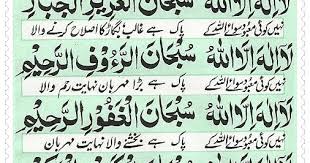 لَا اِلٰهَ اِلَّا اللهُ سُبْحَانَ الْعَزِيْزِ الْجَبَّارِ
نہیں کوئی معبود سوائے اللہ کے پاک ہے غالب بگاڑ کا اصلاح کرنے والا
لَا اِلٰهَ اِلَّا اللهُ سُبْحَانَ الرَّءُوْفِ الرَّحِيْمِ
نہیں کوئی معبود سوائے اللہ کے پاک ہے بڑا مہربان نہایت رحم والا
لَا اِلٰهَ اِلَّا اللهُ سُبْحَانَ الْغَفُوْرِ الرَّحِيْمِ
نہیں کوئی معبود سوائے اللہ کے پاک ہے بخشنے والا نہایت مہربان